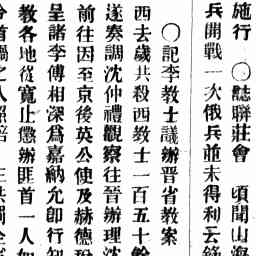 施行　〇誌聯莊會　頃聞山海
兵開戰一次俄兵並未得利云錄
〇記李教士議辦晉省教案
西去歲共殺西教士一百五十餘
遂奏調沈仲禮觀察往晉辦理沈
前往因至京後英公使及赫德稅
呈諸李傅相深爲嘉納允卽行知
教各地從寬止懲辦匪首一人如